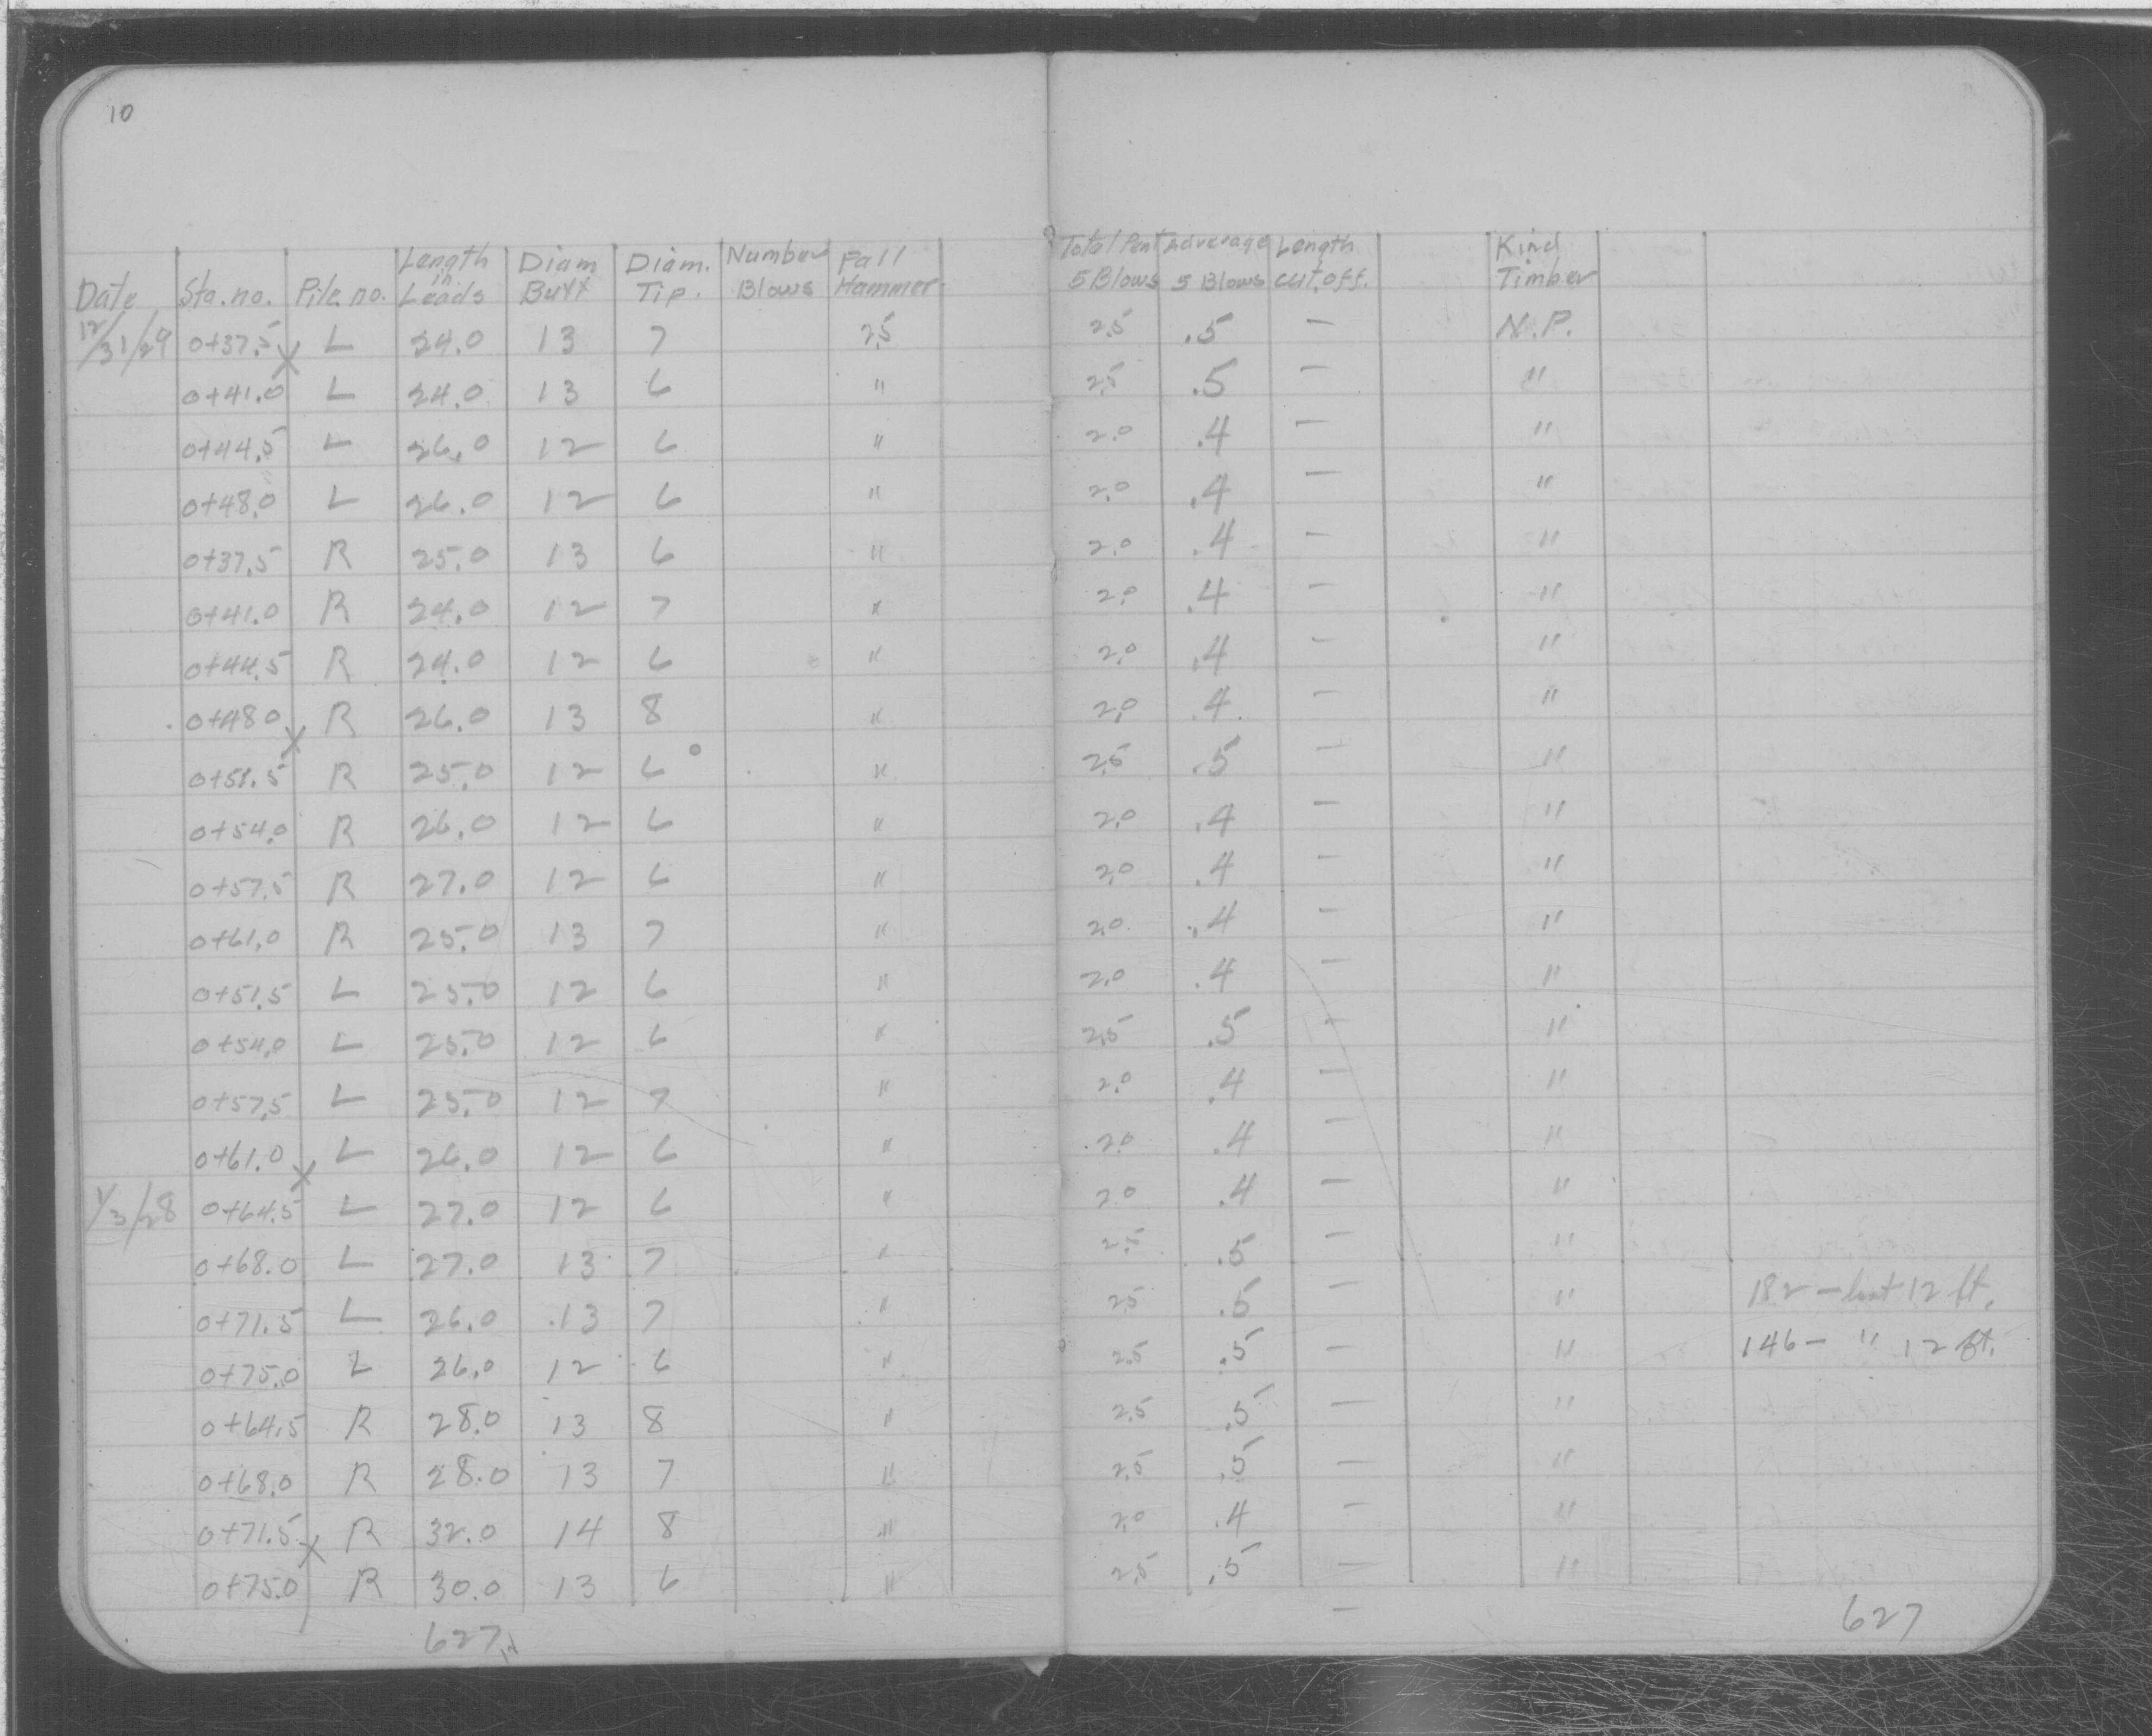 10
Date Sta. no. Pile no. Length in Leads Diam Butt Diam. Tip. Number Blows Fall Hammer Total Pent 5 Blows Adverage 5 Blows Length cut.off. Kind Timber
12/31/29 0+37.5 x L 24.0 13 7 25 2.5 .5 — N.P.
0+41.0 L 24.0 13 6 " 2.5 .5 — "
0+44.5 L 26.0 12 6 " 2.0 .4 — "
0+48.0 L 26.0 12 6 " 2.0 .4 — "
0+37.5 R 25.0 13 6 " 2.0 .4 — "
0+41.0 R 24.0 12 7 " 2.0 .4 — "
0+44.5 R 24.0 12 6 " 2.0 .4 — "
0+48.0 x R 26.0 13 8 " 2.0 .4 — "
0+51.5 R 25.0 12 6 " 2.5 .5 — "
0+54.0 R 26.0 12 6 " 2.0 .4 — "
0+57.5 R 27.0 12 6 " 2.0 .4 — "
0+61.0 R 25.0 13 7 " 2.0 .4 — "
0+51.5 L 25.0 12 6 " 2.0 .4 — "
0+54.0 L 25.0 12 6 " 2.5 .5 — "
0+57.5 L 25.0 12 7 " 2.0 .4 — "
0+61.0 x L 26.0 12 6 " 2.0 .4 — "
1/3/28 0+64.5 L 27.0 12 6 " 2.0 .4 — "
0+68.0 L 27.0 13 7 " 2.5 .5 — "
0+71.5 L 26.0 13 7 " 2.5 .5 — " 182 — last 12 ft.
0+75.0 L 26.0 12 6 " 2.5 .5 — " 146 — " 12 ft.
0+64.5 R 28.0 13 8 " 2.5 .5 — "
0+68.0 R 28.0 13 7 " 2.5 .5 — "
0+71.5 x R 32.0 14 8 " 2.0 .4 — "
0+75.0 R 30.0 13 6 " 2.5 .5 — "
627 — 627